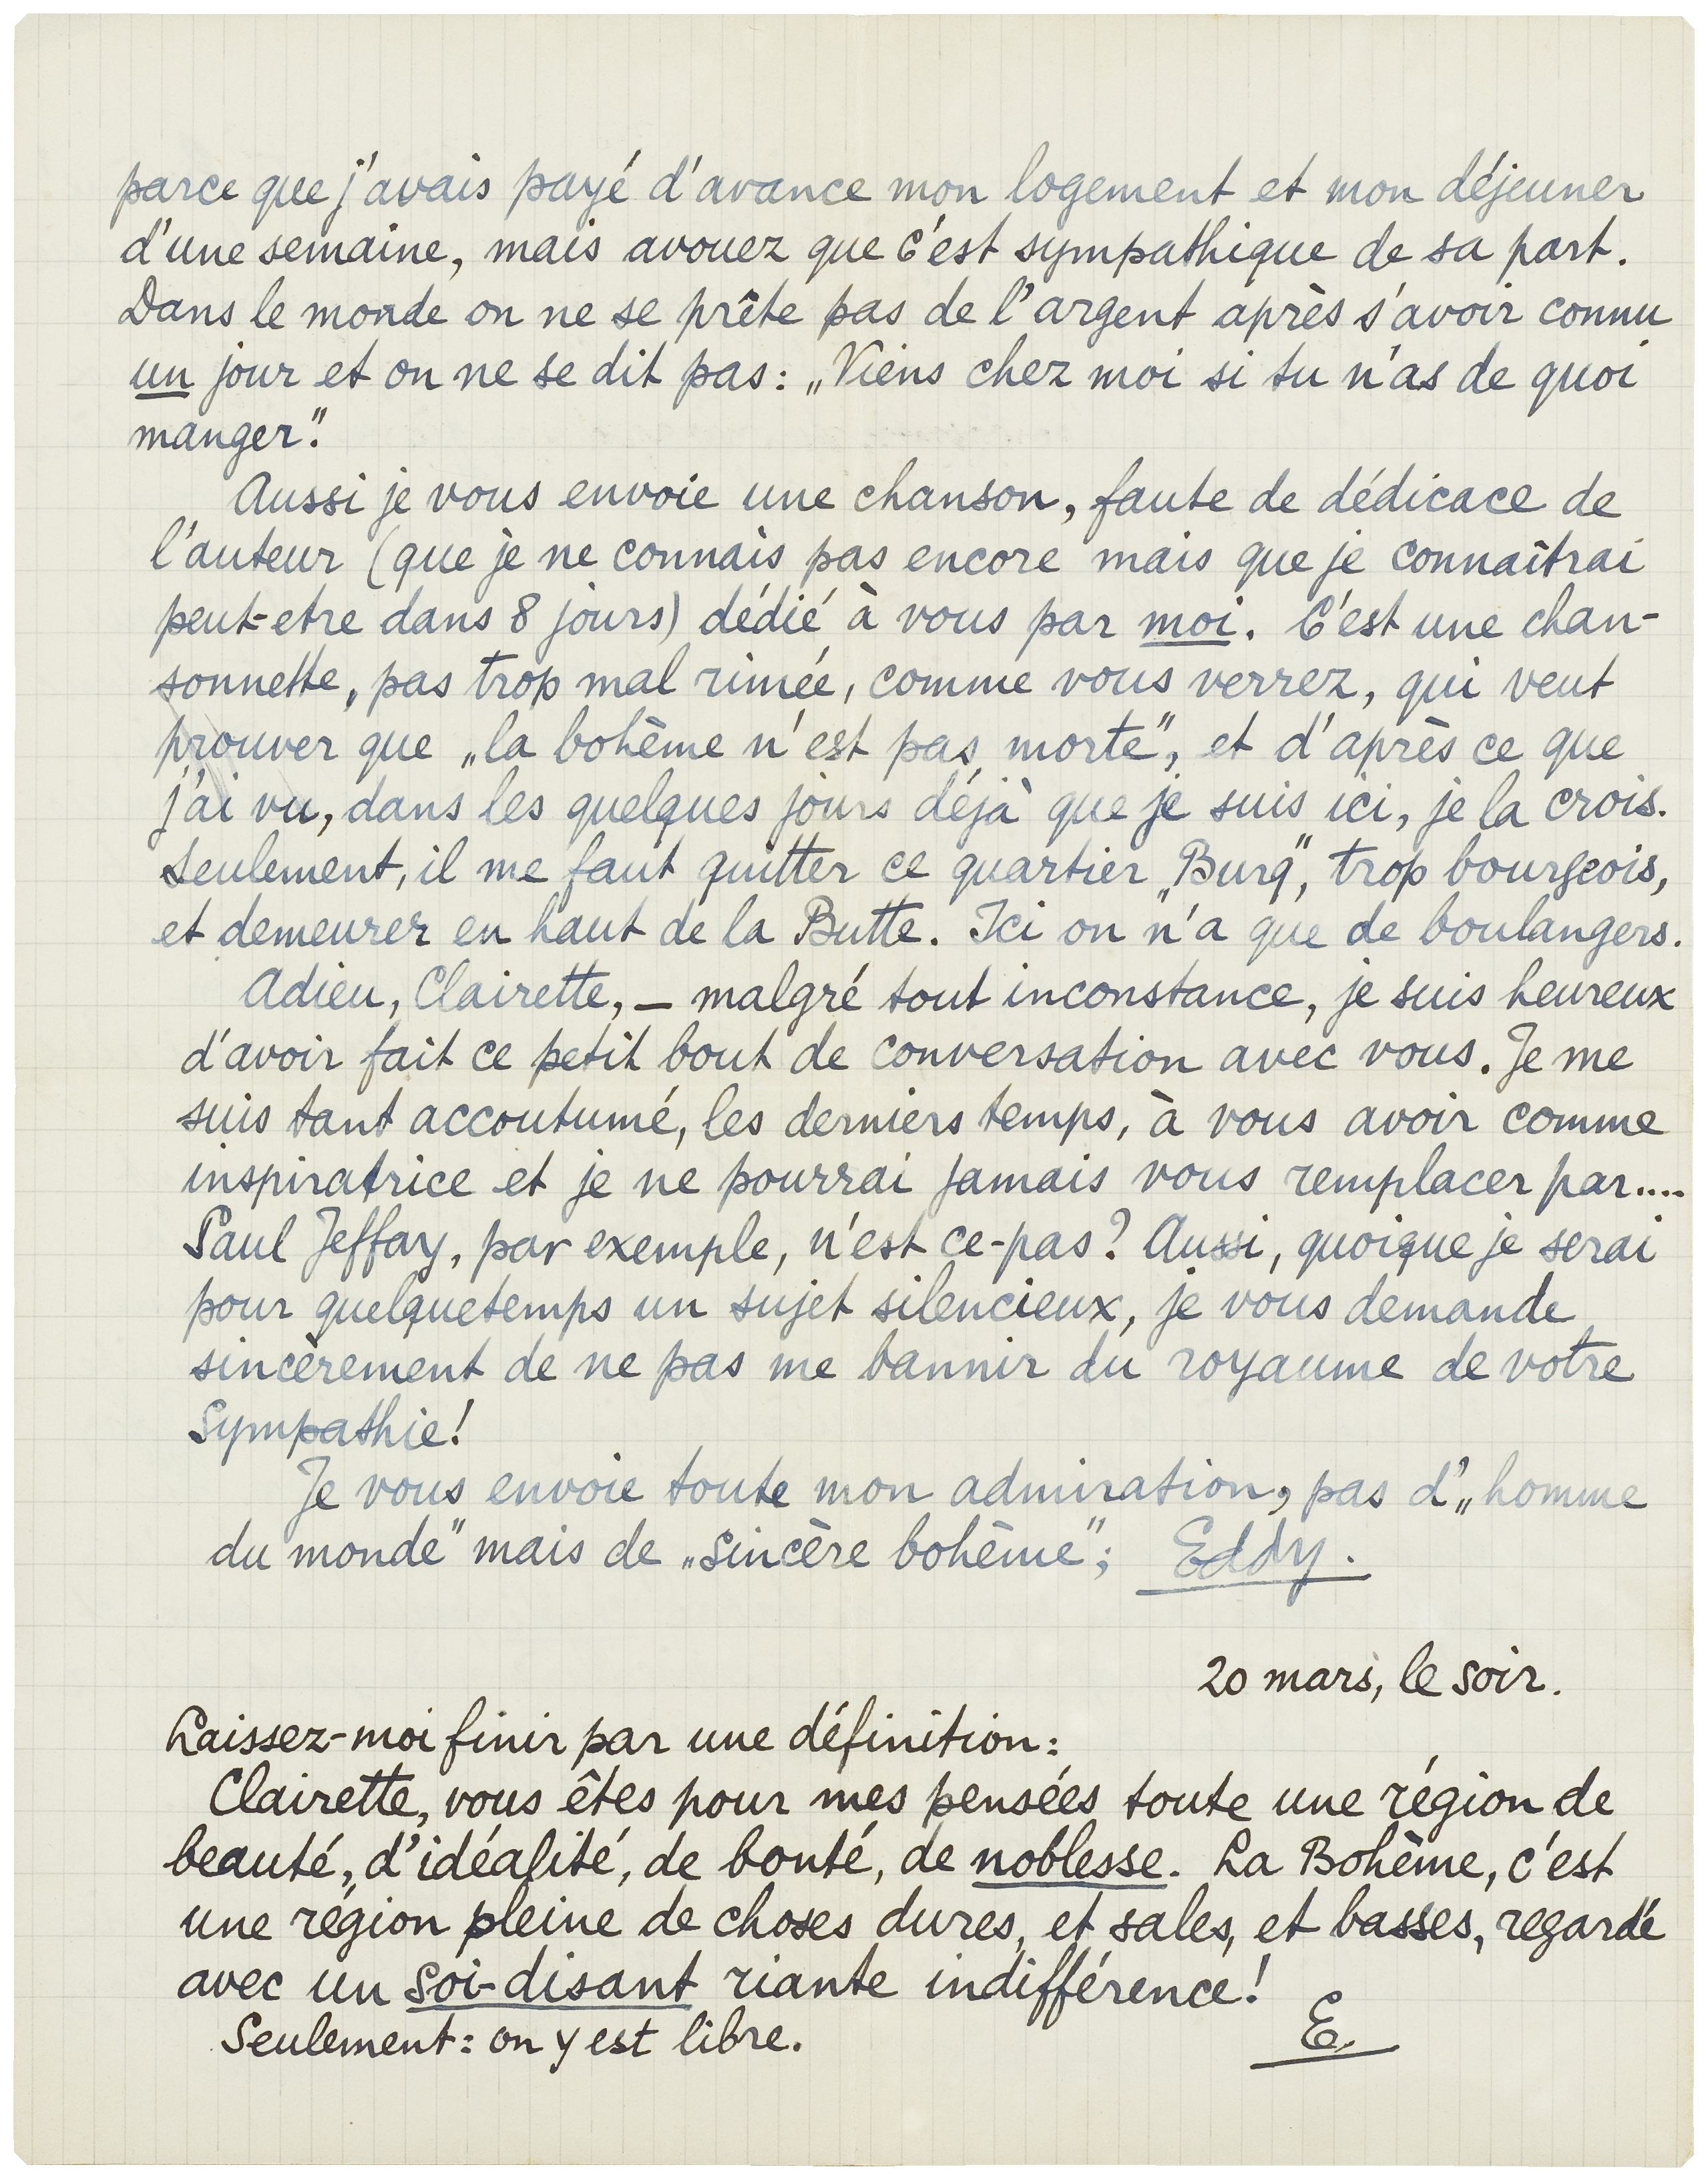 parce que j'avais payé d'avance mon logement et mon déjeuner
d'une semaine, mais avouez que c'est sympathique de sa part.
Dans le monde on ne se prête pas de l'argent après s'avoir connu
un jour et on ne se dit pas: „Viens chez moi si tu n'as de quoi
manger."
Aussi je vous envoie une chanson, faute de dédicace de
l'auteur (que je ne connais pas encore mais que je connaîtrai
peut-etre dans 8 jours) dédié à vous par moi. C'est une chan-
sonnette, pas trop mal rimée, comme vous verrez, qui veut
prouver que „la bohème n'est pas morte", et d'après ce que
j'ai vu, dans les quelques jours déjà que je suis ici, je la crois.
Seulement, il me faut quitter ce quartier „Burg", trop bourgeois,
et demeurer en haut de la Butte. Ici on n'a que de boulangers.
Adieu, Clairette, – malgré tout inconstance, je suis heureux
d'avoir fait ce petit bout de conversation avec vous. Je me
suis tant accoutumé, les derniers temps, à vous avoir comme
inspiratrice et je ne pourrai jamais vous remplacer par....
Paul Jeffay, par exemple, n'est ce-pas? Aussi, quoique je serai
pour quelquetemps un sujet silencieux, je vous demande
sincèrement de ne pas me bannir du royaume de votre
sympathie!
Je vous envoie toute mon admiration, pas d'„homme
du monde" mais de „sincère bohème"; Eddy.
20 mars, le soir.
Laissez-moi finir par une définition:
Clairette, vous êtes pour mes pensées toute une région de
beauté, d'idéalité, de bonté, de noblesse. La Bohème, c'est
une région pleine de choses dures, et sales, et basses, regardé
avec un soi-disant riante indifférence!
Seulement: on y est libre. E.